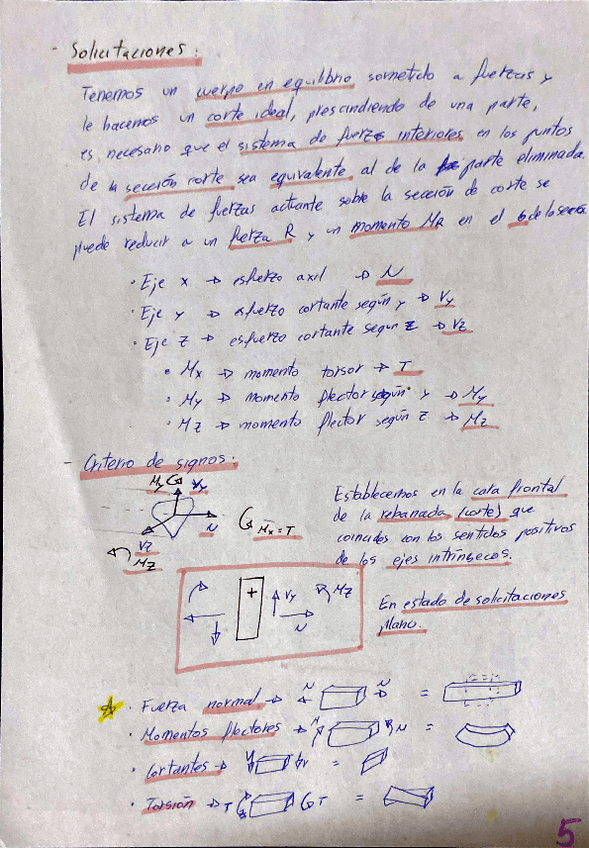 - Solicitaciones:
Tenemos un cuerpo en equilibrio sometido a fuerzas y
le hacemos un corte ideal, prescindiendo de una parte,
es necesario que el sistema de fuerzas interiores en los puntos
de la sección corte sea equivalente al de la parte eliminada.
El sistema de fuerzas actuante sobre la sección de corte se
puede reducir a un fuerza R y un momento MR en el G de la sección
· Eje x → esfuerzo axil → N
· Eje y → esfuerzo cortante según y → Vy
· Eje z → esfuerzo cortante segun z → Vz
• Mx → momento torsor → T
• My → momento flector según y → My
• Mz → momento flector según z → Mz
- Criterio de signos:
My Vy
N
Mx = T
Vz
Mz
Establecemos en la cara frontal
de la rebanada (corte) que
coincidas con los sentidos positivos
de los ejes intrínsecos.
+ Vy Mz
N
En estado de solicitaciones
plano.
· Fuerza normal → N N =
· Momentos flectores → M M =
· Cortantes → V V =
· Torsión → T T =
5